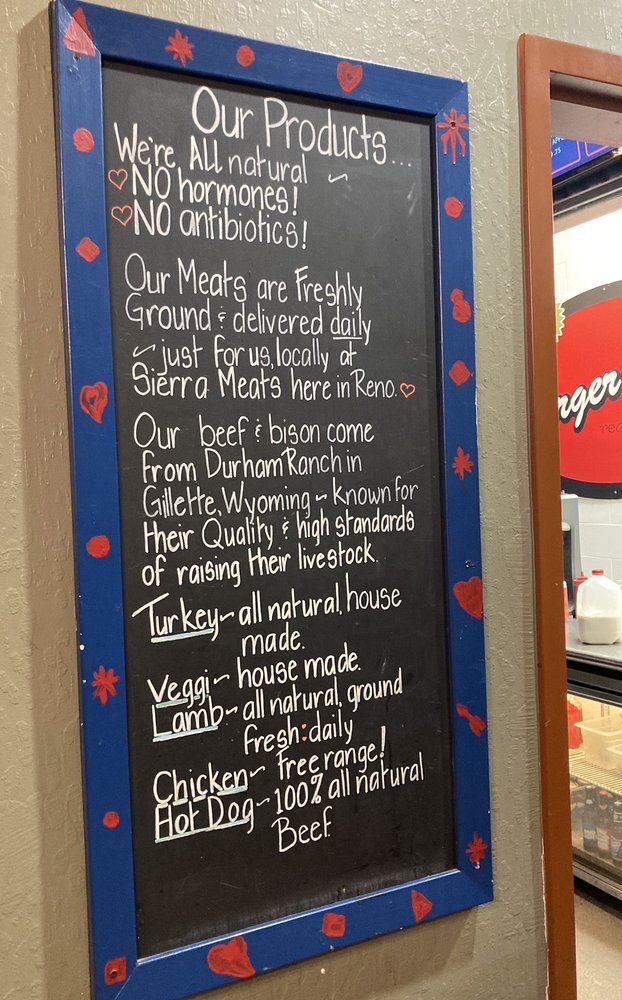 Our Products...
We're ALL natural ~
♡NO hormones!
♡NO antibiotics!
Our Meats are Freshly
Ground & delivered daily
~ just for us, locally at
Sierra Meats here in Reno. ♡
Our beef & bison come
from Durham Ranch in
Gillette, Wyoming ~ known for
their Quality & high standards
of raising their livestock.
Turkey~ all natural, house
made.
Veggi~ house made.
Lamb~ all natural, ground
fresh: daily
Chicken~ free range!
Hot Dog~ 100% all natural
Beef.